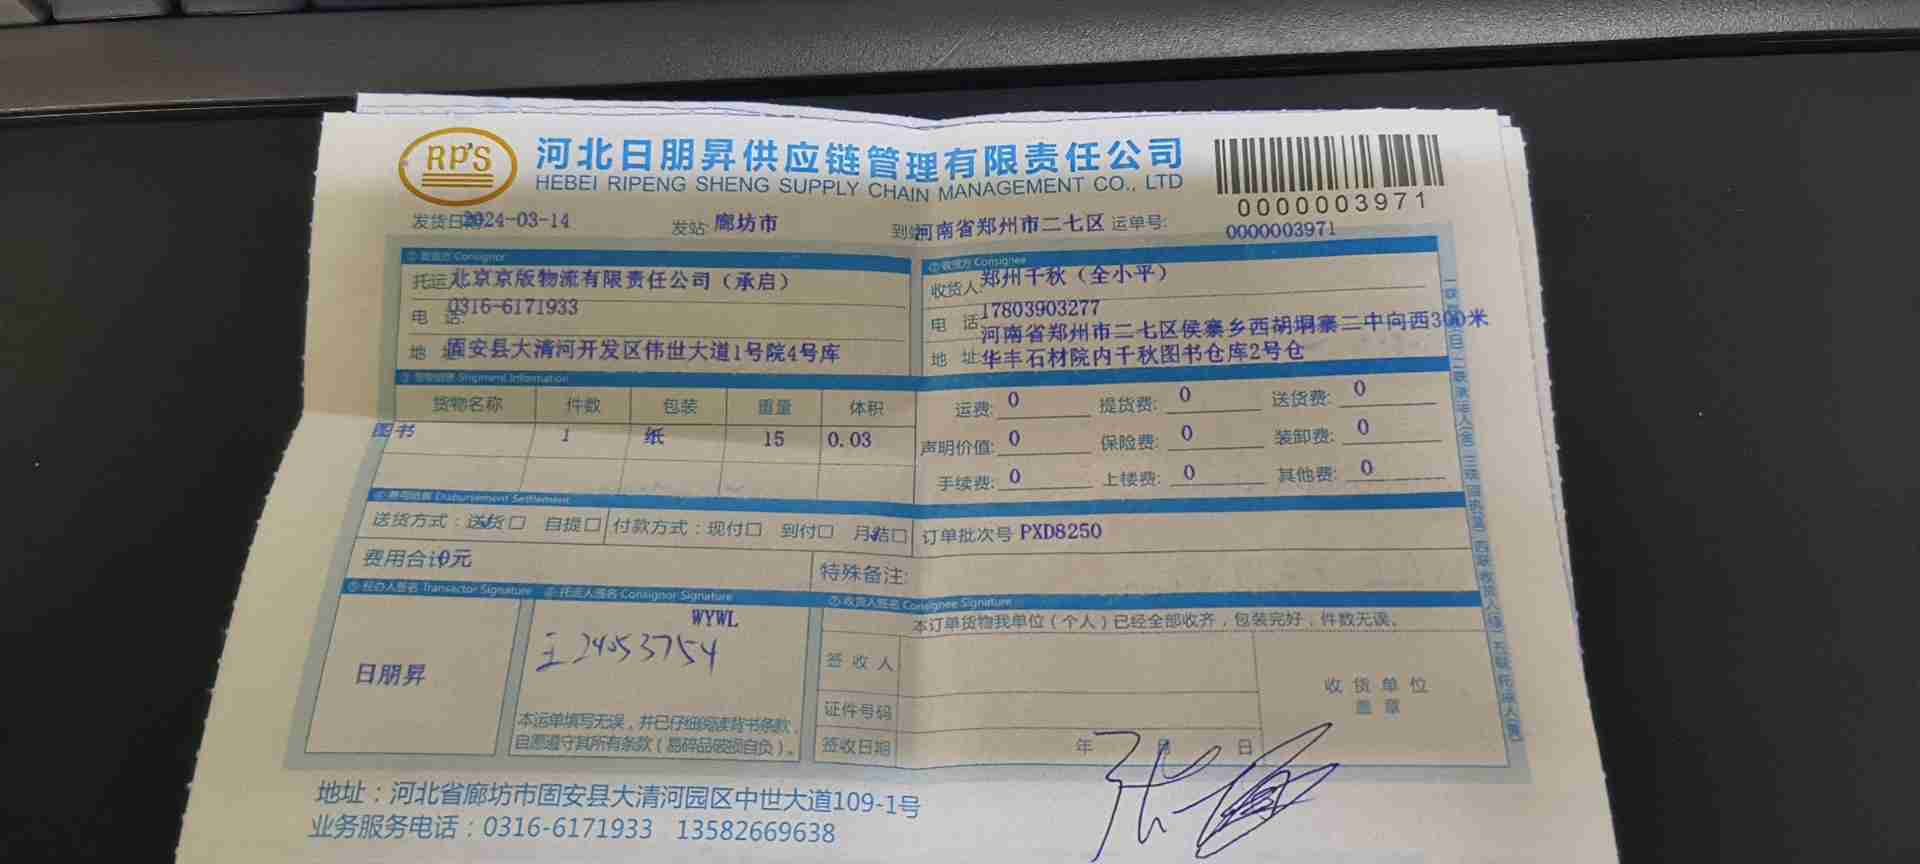 RP'S
河北日朋昇供应链管理有限责任公司
HEBEI RIPENG SHENG SUPPLY CHAIN MANAGEMENT CO., LTD
0000003971
发货日期 2024-03-14 发站: 廊坊市 到站 河南省郑州市二七区 运单号: 0000003971
① 发货方 Consignor
托运 北京京版物流有限责任公司（承启）
电 话: 0316-6171933
地 址 固安县大清河开发区伟世大道1号院4号库
② 收货方 Consignee
收货人 郑州千秋（全小平）
电 话 17803903277
地 址 河南省郑州市二七区侯寨乡西胡垌寨二中向西300米
华丰石材院内千秋图书仓库2号仓
③ 货物信息 Shipment Information
货物名称 件数 包装 重量 体积
图书 1 纸 15 0.03
运费: 0 提货费: 0 送货费: 0
声明价值: 0 保险费: 0 装卸费: 0
手续费: 0 上楼费: 0 其他费: 0
④ 费用结算 Disbursement Settlement
送货方式：送货☐ 自提☐ 付款方式：现付☐ 到付☐ 月结☐ 订单批次号 PXD8250
费用合计 0元 特殊备注:
⑤ 经办人签名 Transactor Signature
日朋昇
⑥ 托运人签名 Consignor Signature
WYWL
王24053754
本运单填写无误，并已仔细阅读背书条款，
自愿遵守其所有条款（易碎品破损自负）。
⑦ 收货人签名 Consignee Signature
本订单货物我单位（个人）已经全部收齐，包装完好，件数无误。
签 收 人
证件号码
签收日期 年 月 日
收 货 单 位
盖 章
地址：河北省廊坊市固安县大清河园区中世大道109-1号
业务服务电话：0316-6171933 13582669638